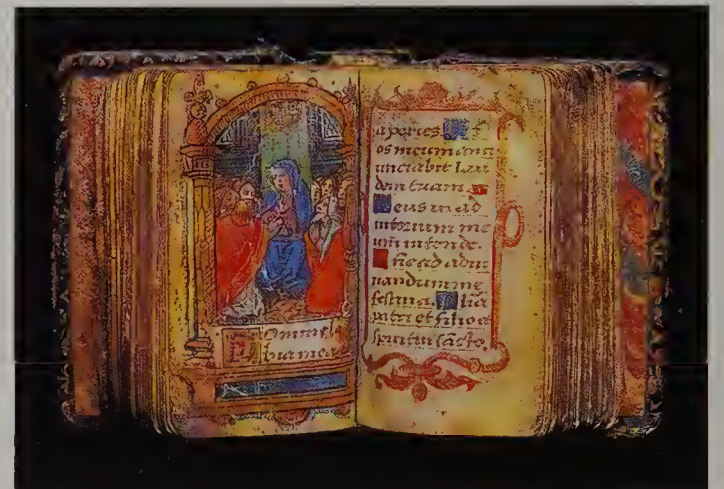 Domine la
bia mea
aperies
os meum annu
unciabit lau
dem tuam.
Deus in ad
iutorium me
um intende.
Dne ad adiu
uandum me
festina. Glia
patri et filio et
spiritui sācto.